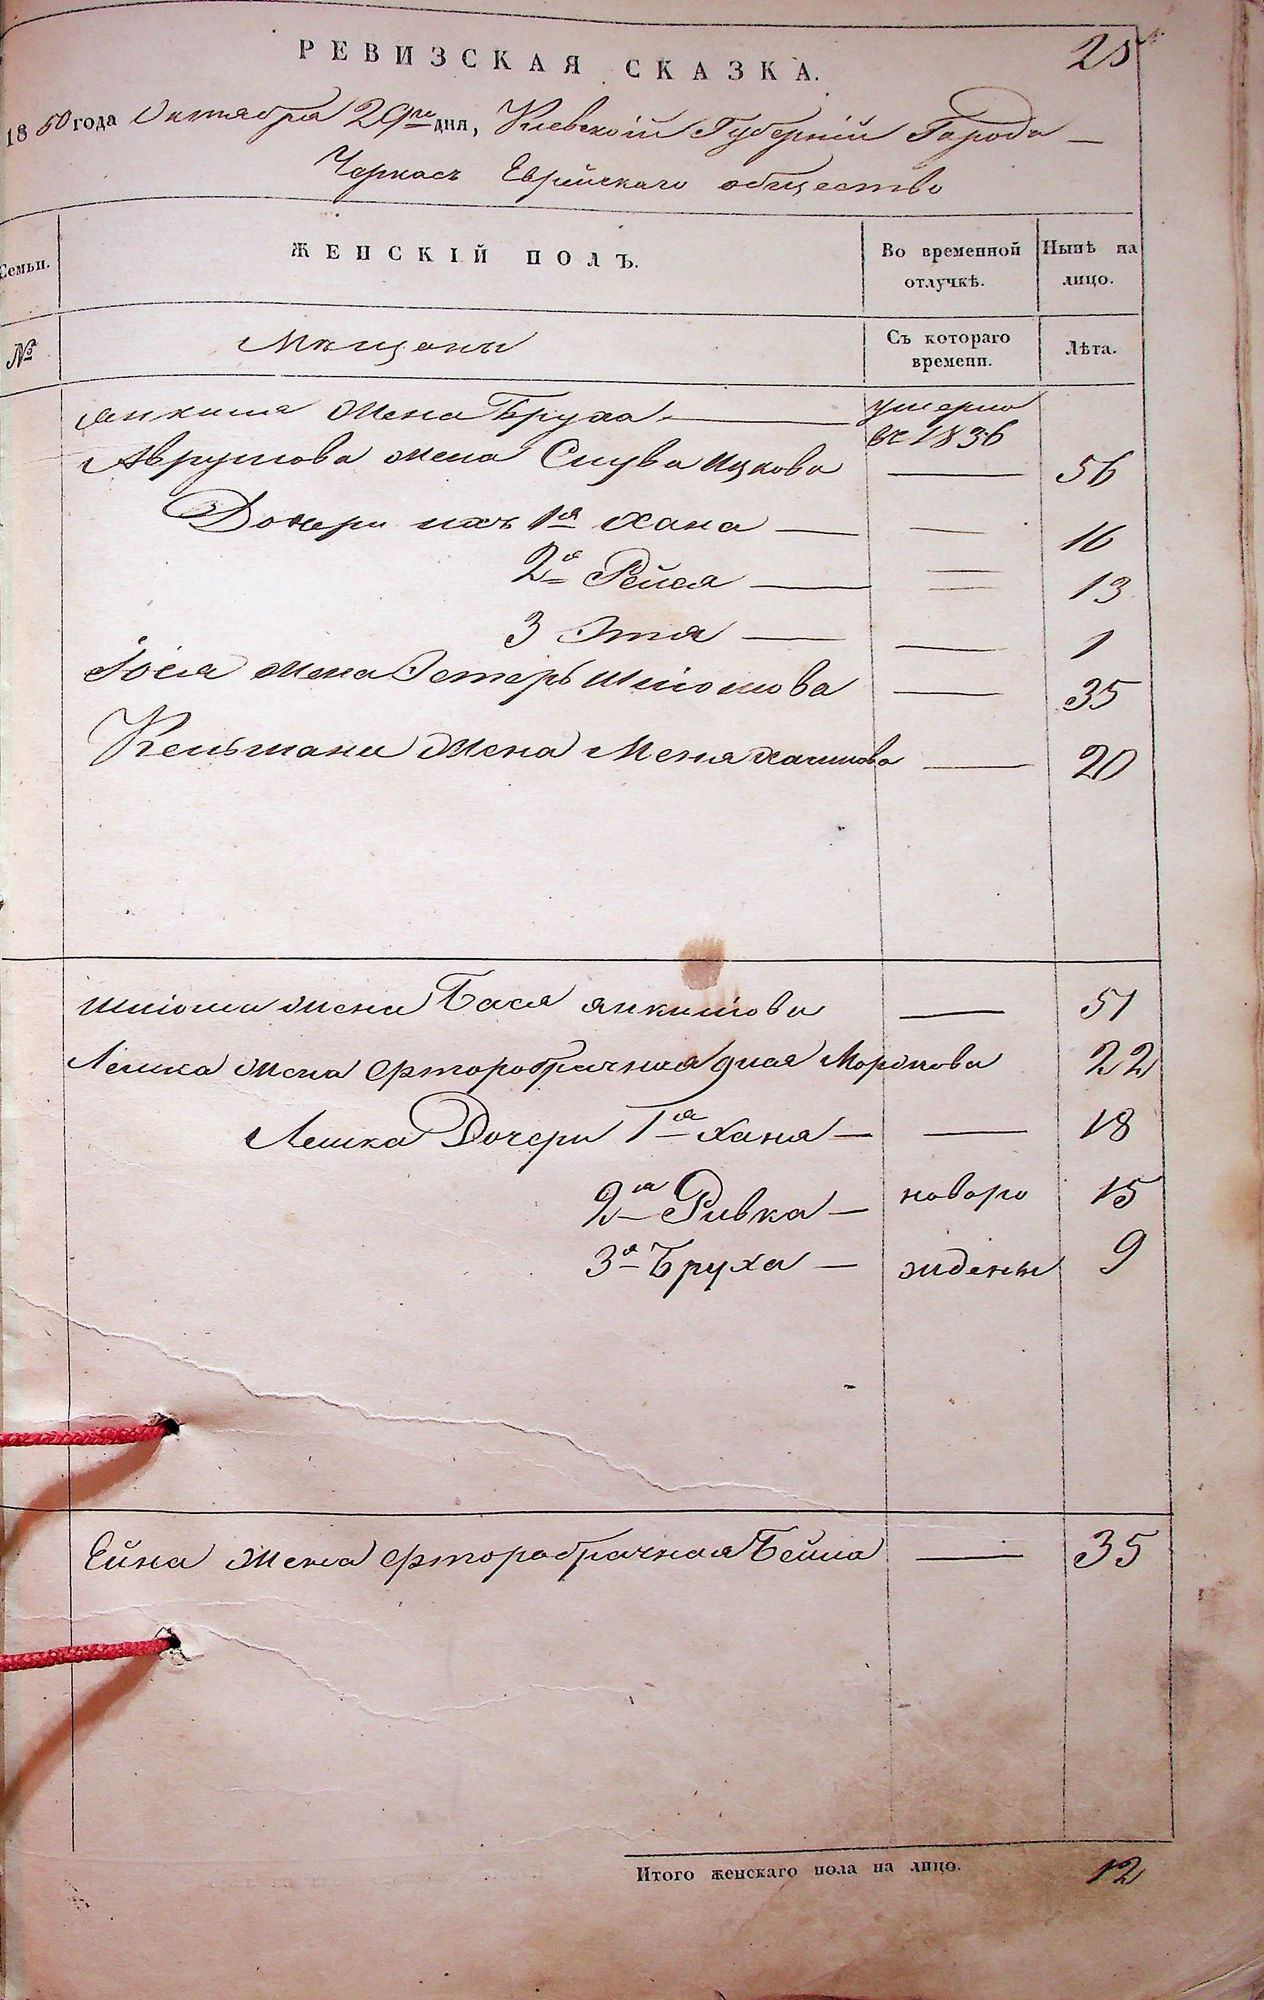 РЕВИЗСКАЯ СКАЗКА.
25
1850 года Октября 29го дня, Киевской Губерніи Города
Черкасъ Еврейскаго общества
Семьи.
ЖЕНСКІЙ ПОЛЪ.
Во временной отлучкѣ.
Нынѣ на лицо.
№
Мещаны
Съ котораго времени.
Лѣта.
Янкиля жена Бруха — умерла въ 1836
Аврумова жена Слува Ицкова — 56
Дочери ихъ 1я Хана — 16
2я Рейся — 13
3 Этя — 1
Іося жена Эстеръ Шліомова — 35
Кельмана жена Меня Хаимова — 20
Шліома жена Бася Янкилова — 51
Лейзка жена фторобрачная Мордкова 22
Дочери 1я Ханя — 18
2я Ривка — новоро 15
3я Бруха — ждены 9
жена фторобрачная Бейла — 35
Итого женскаго пола на лицо. 12